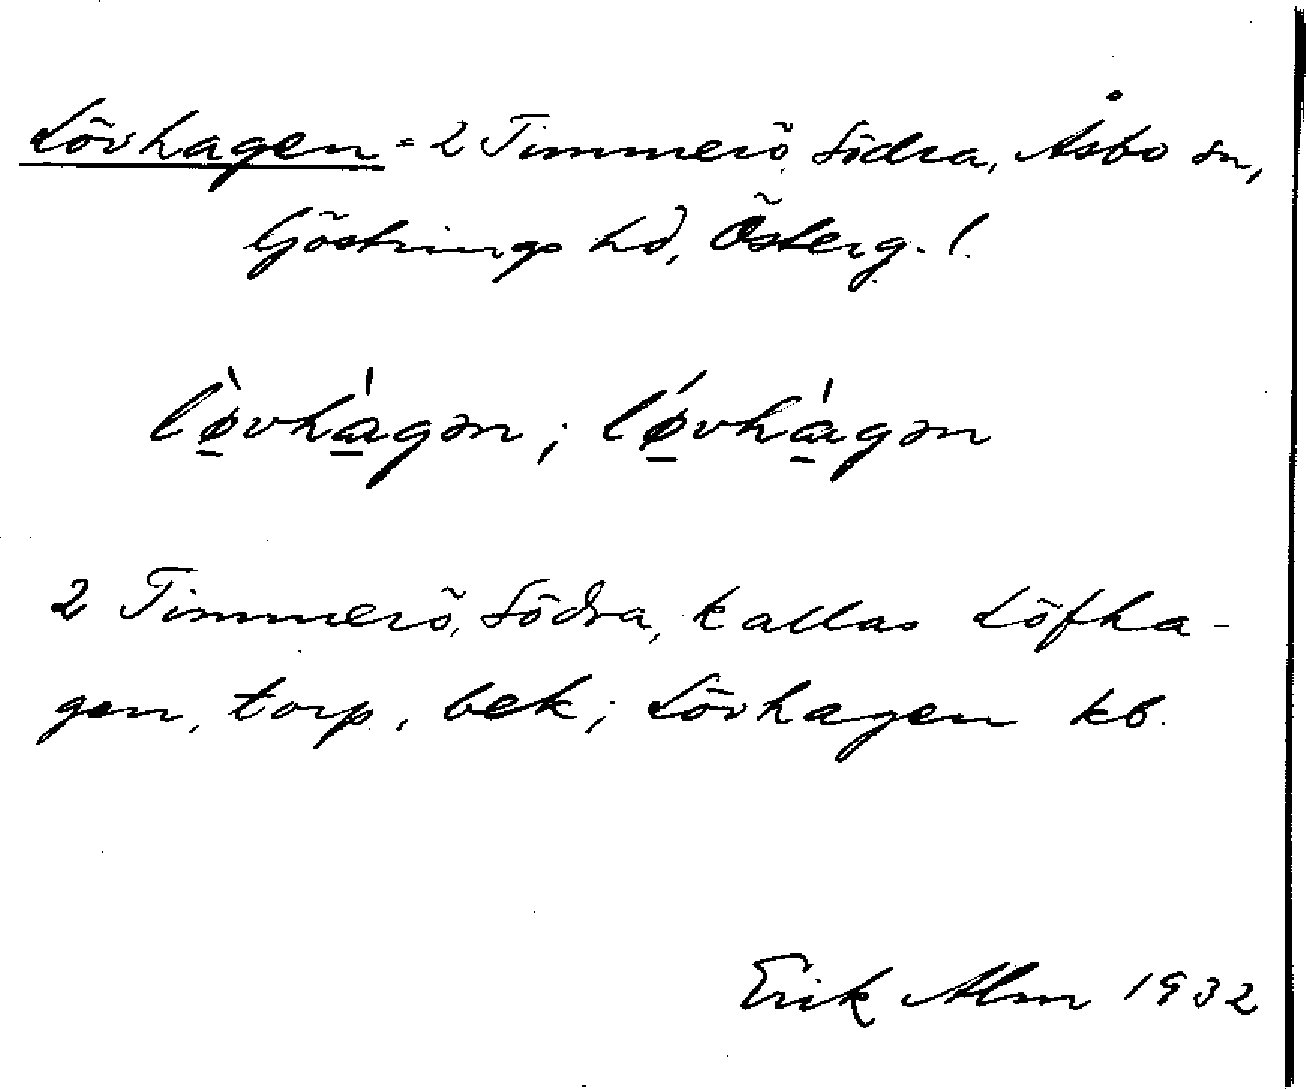 Lövhagen = 2 Timmerö, Södra, Åsbo sn,
Göstrings hd, Österg. l.
lø̱̀vhá̱gən; lǿ̱vhà̱gən
2 Timmerö, Södra, kallas Löfha-
gen, torp, bek; Lövhagen kb.
Erik Alm 1932